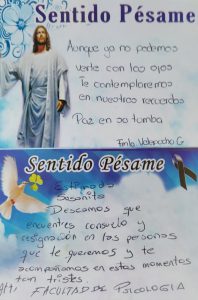 Sentido Pésame
Aunque ya no podemos
verte con los ojos
Te contemplaremos
en nuestros recuerdos
Paz en su tumba
Sentido Pésame
Estimada
Desamos que
encuentres consuelo y
resignación en las personas
que te queremos y te
acompañamos en estos momentos
tan tristes.
FACULTAD DE PSICOLOGIA